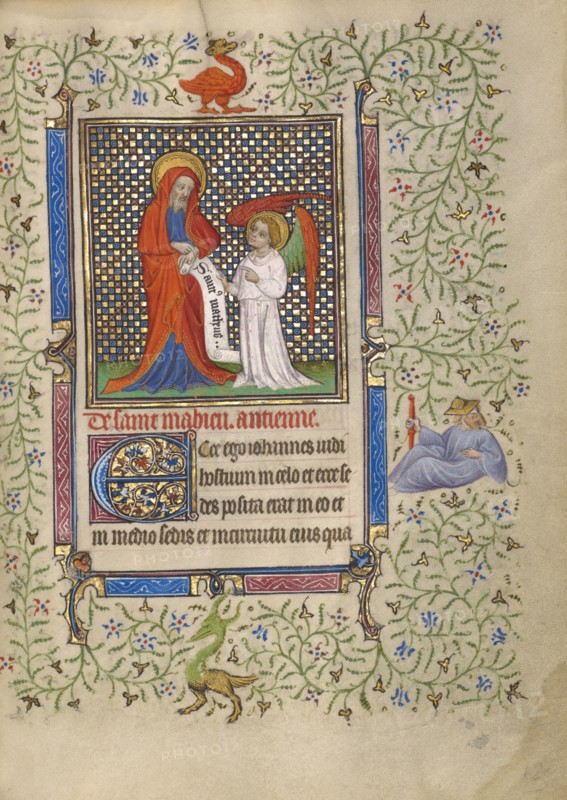 Sainꝰ matheus..
De saint mahieu. antienne.
Ecce ego iohannes uidi
hostium in celo et ecce se
des posita erat in eo et
in medio sedis et in circuitu eius qua
PHOTO12